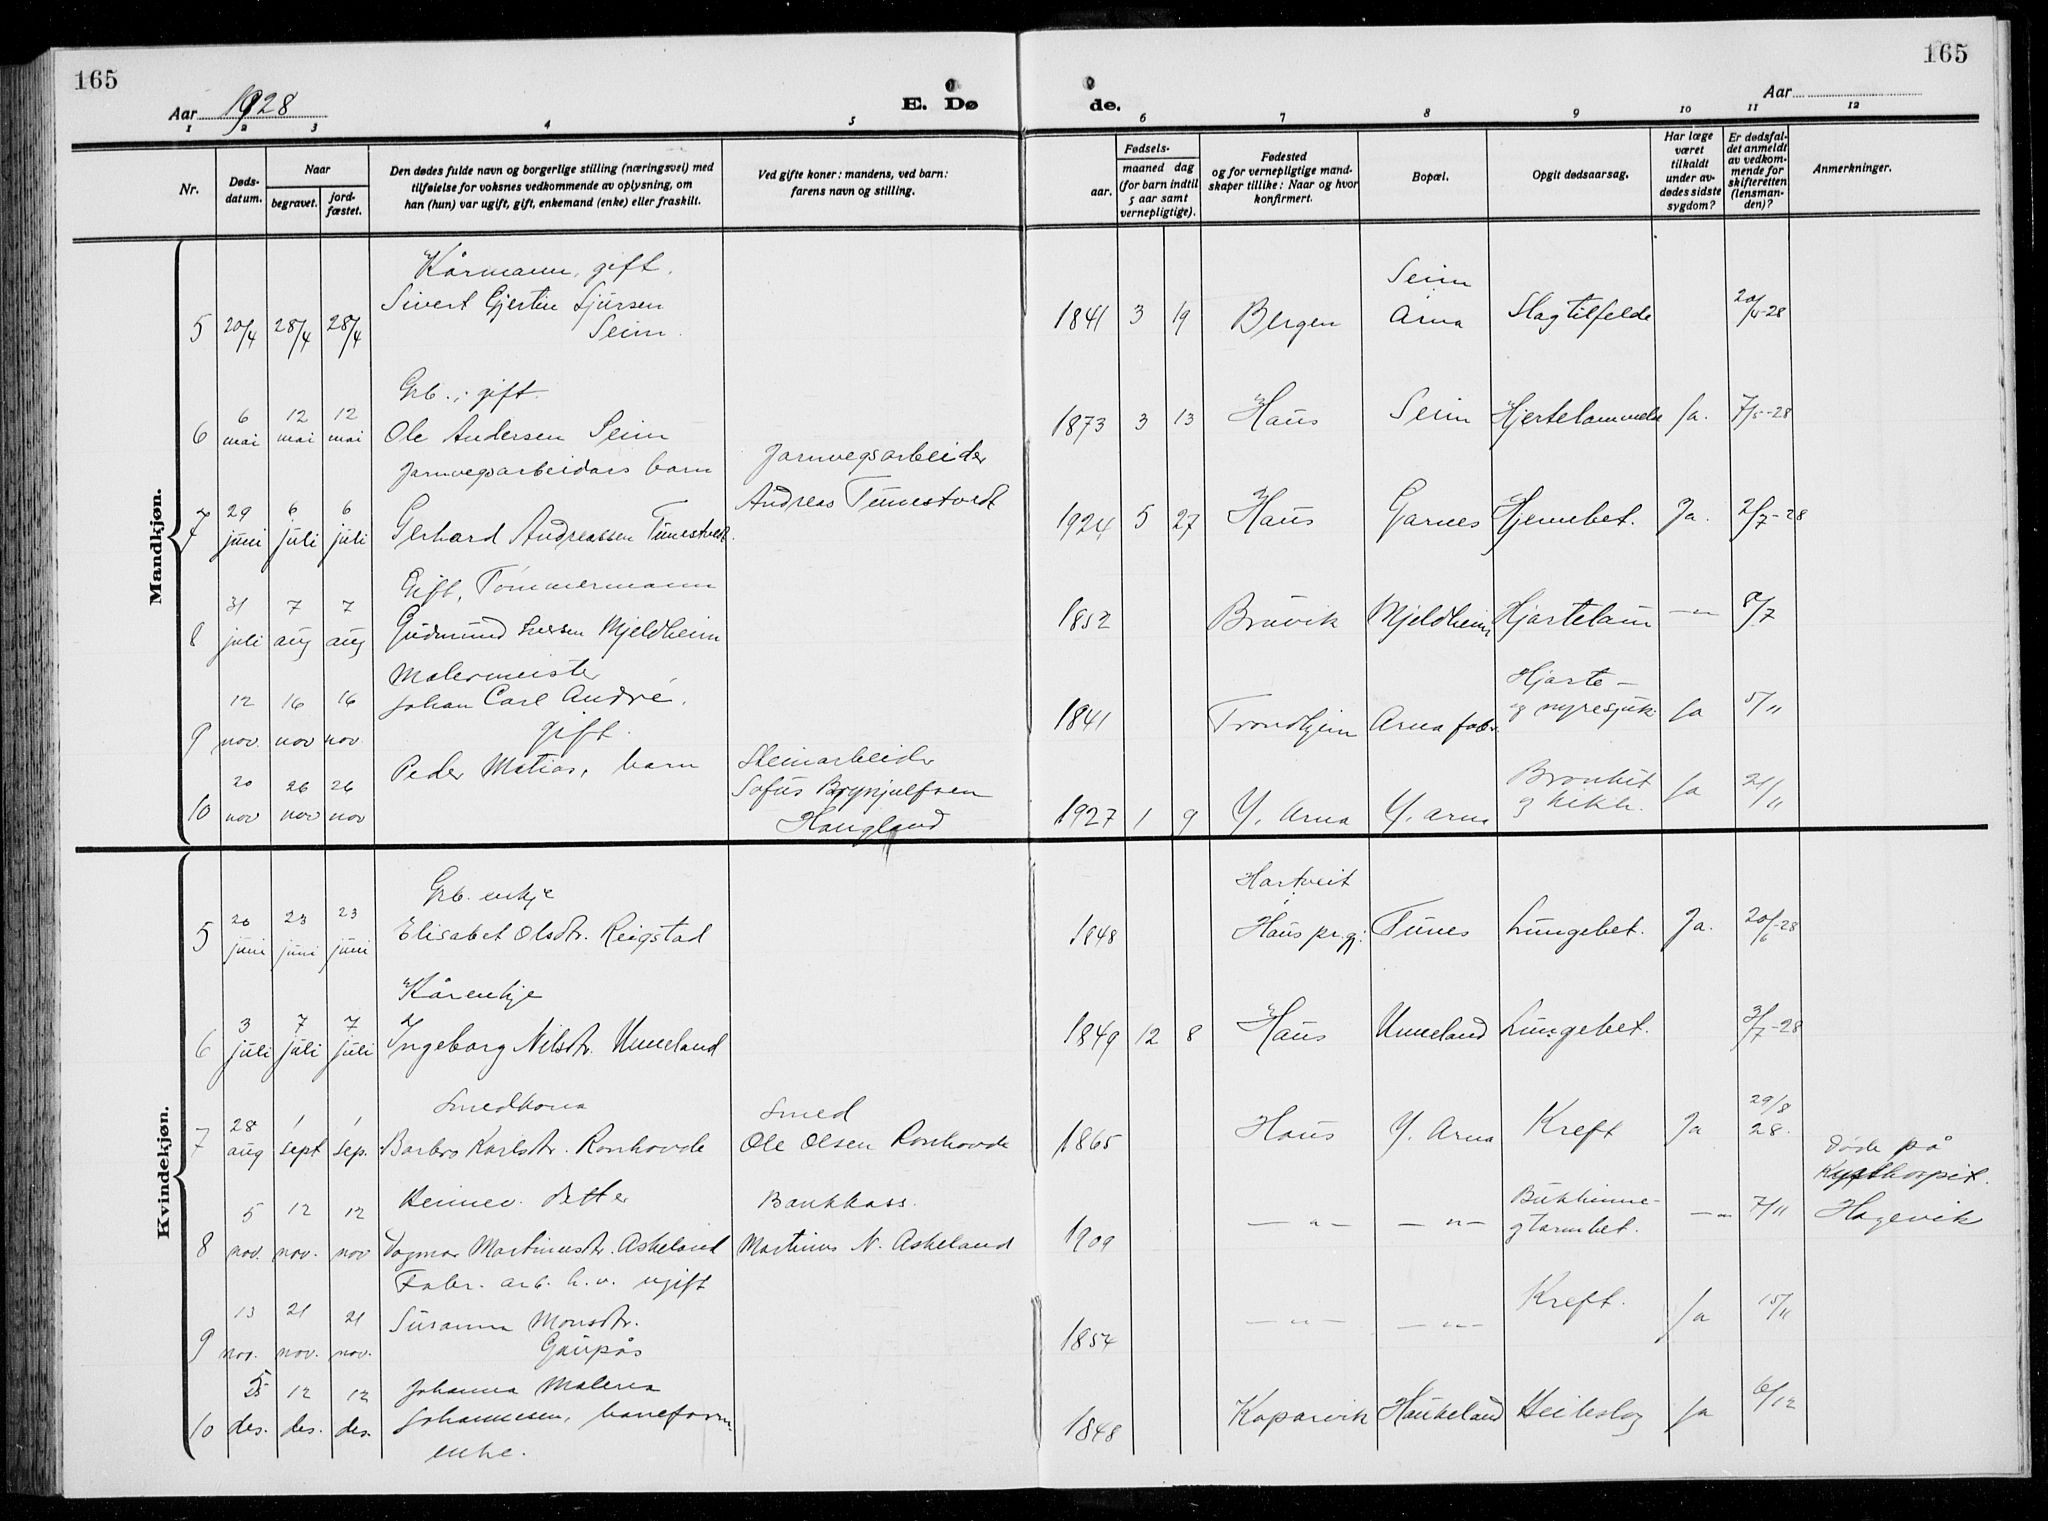 165
165
Aar 1928
E. Dø
de.
Aar
1 2 3 4 5 6 7 8 9 10 11 12
Nr.
Døds-datum.
Naar
begravet.
jord-fæstet.
Den dødes fulde navn og borgerlige stilling (næringsvei) med
tilføielse for voksnes vedkommende av oplysning, om
han (hun) var ugift, gift, enkemand (enke) eller fraskilt.
Ved gifte koner: mandens, ved barn:
farens navn og stilling.
Fødsels-
aar.
maaned dag
(for barn indtil
5 aar samt
vernepligtige).
Fødested
og for vernepligtige mand-
skaper tillike: Naar og hvor
konfirmert.
Bopæl.
Opgit dødsaarsag.
Har læge
været
tilkaldt
under av-
dødes sidste
sygdom?
Er dødsfal-
det anmeldt
av vedkom-
mende for
skifteretten
(lensman-
den)?
Anmerkninger.
Mandkjøn.
Kårmann, gift.
Sivert Gjertin Sjursen
Seim.
5 20/4 28/4 28/4
1841 3 19 Bergen Seim Arna Slagtilfelde 20/4-28
Grb.; gift.
6 6 mai 12 mai 12 mai Ole Andersen Seim
1873 3 13 Haus Seim Hjertelammelse Ja. 7/5-28
Jarnvegsarbeidars barn
Jarnvegsarbeider
Andreas Tunestvedt
7 29 juni 6 juli 6 juli Gerhard Andreassen Tunestvedt.
1924 5 27 Haus Garnes Hjernebet. Ja. 2/7-28
Gift, Tømmermann
8 31 juli 7 aug 7 aug Gudmund Iversen Mjeldheim
1852 Bruvik Mjeldheim Hjartelam —"— 8/7
Malermeister
Johan Carl André.
gift.
9 12 nov. 16 nov 16 nov.
1841 Trondhjem Arna fabr. Hjarte-
og nyresjuk Ja 5/11
Peder Matias, barn
Steinarbeider
Sofus Brynjulfsen
Haugland
10 20 nov 26 nov 26 nov
1927 1 9 Y. Arna Y. Arna Bronkit
og kikh. Ja 21/11
Kvindekjøn.
Grb. enkje
5 20 juni 23 juni 23 juni Elisabet Olsdtr. Reigstad
1848 Hartveit
Haus pr.gj. Tunes Lungebet. Ja. 20/6-28
Kårenkje
6 3 juli 7 juli 7 juli Ingeborg Nilsdtr. Unneland
1849 12 8 Haus Unneland Lungebet. 3/7-28
Smedkona
Smed
7 28 aug 1 sept 1 sep. Barbro Karlsdtr. Ronhovde Ole Olsen Ronhovde
1865 Haus Y. Arna Kreft Ja 29/8 28.
Heimev. detter
Bankkass.
8 5 nov. 12 nov. 12 nov Dagmar Martinusdtr. Askeland Martinus N. Askeland
1909 —"— —"— Bukhinne-
og tarmbet. —"— 7/11
Døde på
Kysthospit.
Hagevik
Fabr. arb. h.v. ugift
9 13 nov. 21 nov. 21 nov. Susanna Monsdtr.
Gaupås
1854 —"— —"— Kreft. Ja 15/11
10 5 des. 12 des. 12 des. Johanna Malena
Johannesen, baneform.
enke.
1848 Haukeland Heileslag Ja 6/12